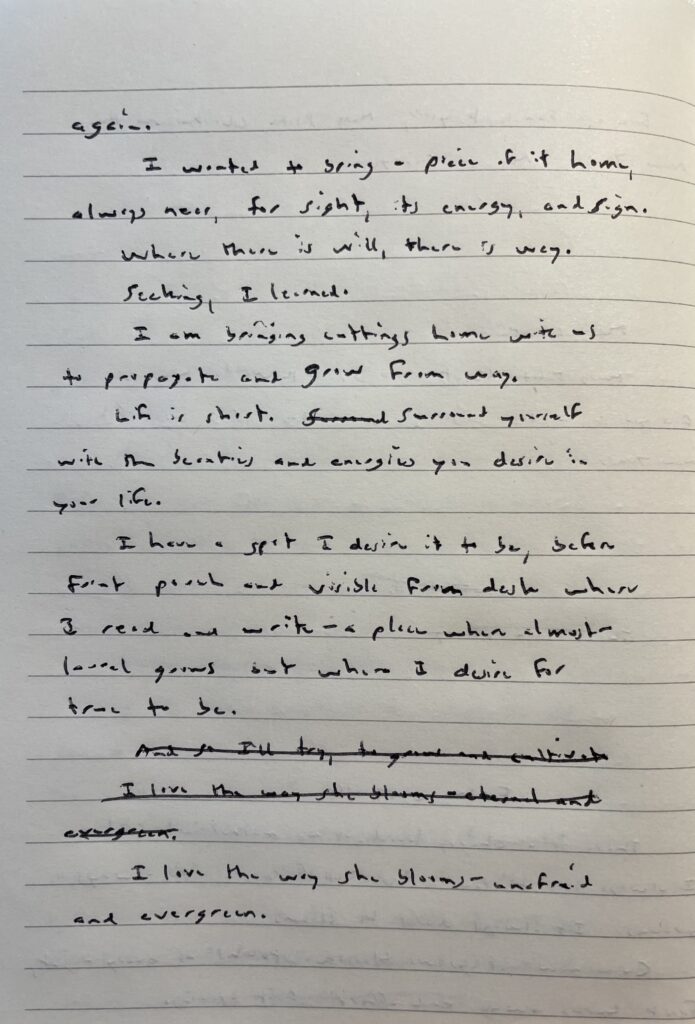 again.
I wanted to bring a piece of it home,
always near, for sight, its energy, and sign.
Where there is will, there is way.
Seeking, I learned.
I am bringing cuttings home with us
to propagate and grow from way.
Life is short. Surround Surround yourself
with the beauties and energies you desire in
your life.
I have a spot I desire it to be, before
front porch and visible from desk where
I read and write - a place where almost-
laurel grows but where I desire for
true to be.
And so I'll try, to grow and cultivate
I love the way she blooms - eternal and
evergreen.
I love the way she blooms - unafraid
and evergreen.